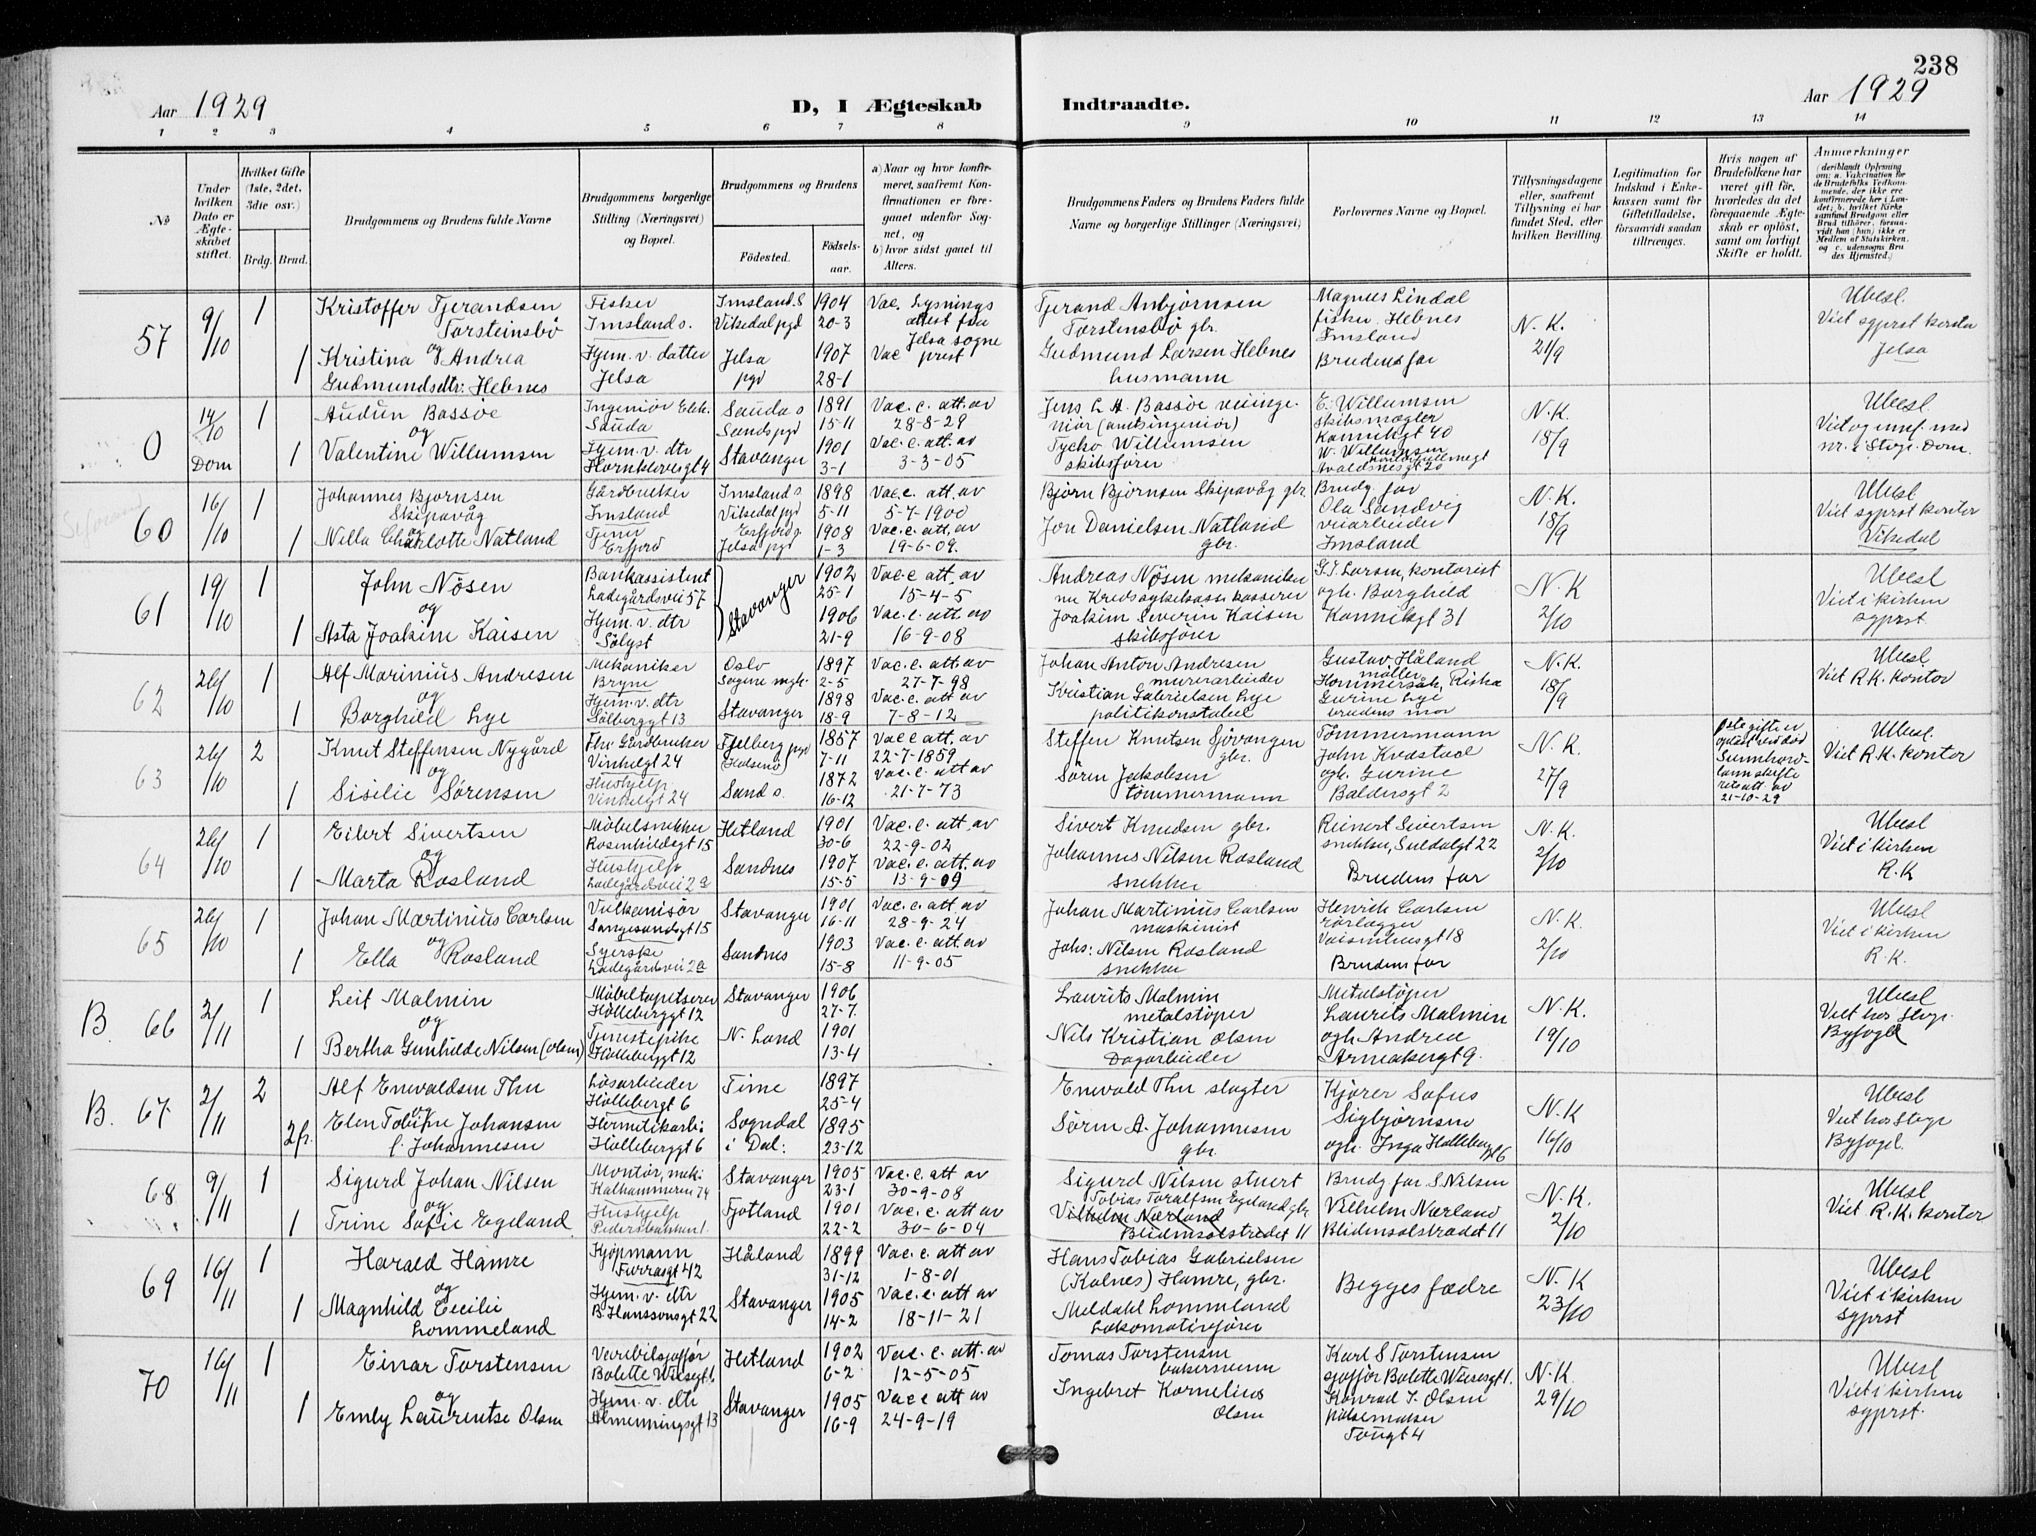 238
Aar 1929
D, I Ægteskab
Indtraadte.
Aar 1929
1 2 3 4 5 6 7 8 9 10 11 12 13 14
№
Under hvilken Dato er Ægteskabet stiftet.
Hvilket Gifte (1ste, 2det, 3die osv.)
Brdg. Brud.
Brudgommens og Brudens fulde Navne
Brudgommens borgerlige Stilling (Næringsvei) og Bopæl.
Brudgommens og Brudens
Födested.
Födselsaar.
a) Naar og hvor konfirmeret, saafremt Konfirmationen er foregaaet udenfor Sognet, og
b) hvor sidst gaaet til Alters.
Brudgommens Faders og Brudens Faders fulde Navne og borgerlige Stillinger (Næringsvei)
Forlovernes Navne og Bopæl.
Tillysningsdagene eller, saafremt Tillysning ei har fundet Sted, efter hvilken Bevilling.
Legitimation for Indskud i Enkekassen samt for Giftetilladelse, forsaavidt saadan tiltrænges.
Hvis nogen af Brudefolkene har været gift för, hvorledes da det foregaaende Ægteskab er oplöst, samt om lovligt Skifte er holdt.
Anmærkninger
57 9/10 1 Kristoffer Tjerandsen Torsteinsbö Fisker Imsland s. Imsland s. Vikedal pgd 1904 20-3 Vac. Lysningsattest fra Jelsa sogneprest Tjerand Anbjørnsen Torstensbø gbr. Magnus Lindal fisker Hebnes Imsland N. K. 21/9 Ubesl. Viet sgprst kontor Jelsa
og
1 Kristina Andrea Gudmundsdtr. Hebnes Hjem. v. datter Jelsa Jelsa pgd 1907 28-1 Vac Gudmund Larsen Hebnes husmann Brudens far
0 14/10 Dom 1 Audun Bassøe Ingeniør Elek. Sauda Sauda s Sands pgd 1891 15-11 Vac. c. att. av 28-8-29 Jens L. A. Bassøe veiingeniør (amtsingeniør) E. Willumsen skibsmægler Kannikgt 40 N. K. 18/9 Ubesl.
og
1 Valentine Willumsen Hjem. v. dtr Stavanger 1901 3-1 Vac. c. att. av 3-3-05 Tycho Willumsen skibsfører W. Willumsen Avaldsnesgt 20
60 16/10 1 Johannes Bjørnsen Skipavåg Gårdbruker Imsland Imsland s. Vikedal pgd 1898 5-11 Vac. c. att. av 5-7-1900 Bjørn Bjørnsen Skipavåg gbr. Brudg. far N. K. 18/9 Ubesl Viet sgprst kontor Vikedal
og
1 Nilla Charlotte Natland Tjener Erfjord Erfjord s. Jelsa pgd 1908 1-3 Vac. c. att. av 19-6-09. Jon Danielsen Natland gbr. Ola Sandvig veiarbeider Imsland
61 19/10 1 John Nösen Bankassistent Ladegårdsvei 57 Stavanger 1902 25-1 Vac. c att. av 15-4-5 Andreas Nøsen mekaniker nu Kredssykekasse kasserer G. J. Larsen, kontorist ogh. Borghild Kannikgt 31 N. K 2/10 Ubesl Viet i kirken sgprst.
og
1 Asta Joakime Kaisen Hjem. v. dtr Sølyst 1906 21-9 Vac. c. att. av 16-9-08 Joakim Severin Kaisen skibsfører
62 26/10 1 Alf Marinius Andresen Mekaniker Bryne Oslo Sagene mgh. 1897 2-5 Vac. c. att. av 27-7-98 Johan Anton Andresen murerarbeider Gustav Håland møller Hommersåk, Riska N. K. 18/9 Ubesl Viet R. K. kontor
og
1 Borghild Lye Hjem. v. dtr Solberggt 13 Stavanger 1898 18-9 Vac. c. att av 7-8-12 Kristian Gabrielsen Lye politikonstabel Gurine Lye brudens mor
63 26/10 2 Knut Steffensen Nygård Fhv. Gårdbruker Vinkelgt 24 Fjelberg pgd (Halsenø) 1857 7-11 Vac c att. av 22-7-1859 Steffen Knutsen Sjövangen gbr. Tømmermann John Kvastad N. K. 27/9 1ste gifte er opløst ved død Sunnhordland skifterets att. av 21-10-29 Ubesl. Viet R. K. kontor
og
1 Sisilie Sørensen Hushjelp Vinkelgt 24 Sand s. 1872 16-12 Vac. c. att av 21-7-73 Sören Jakobsen tömmermann ogh. Gurine Baldersgt 2
64 26/10 1 Eilert Sivertsen Möbelsnekker Rosenkildegt 15 Hetland 1901 30-6 Vac. c. att. av 22-9-02 Sivert Knudsen gbr. Reinert Sivertsen snekker, Suldalgt 22 N. K. 2/10 Ubesl Viet i kirken R. K
og
1 Marta Rosland Hushjelp Ladegårdsvei 2a Sandnes 1907 15-5 Vac. c. att. av 13-9-09 Johannes Nilsen Rosland snekker Brudens far
65 26/10 1 Johan Martinius Carlsen Vulkanisør Langesandsgt 15 Stavanger 1901 16-11 Vac. c. att av 28-9-24 Johan Martinius Carlsen maskinist Henrik Carlsen rørlegger Vaisenhusgt 18 N. K. 2/10 Ubesl Viet i kirken R. K.
og
1 Ella Rosland Syerske Ladegårdsvei 2a Sandnes 1903 15-8 Vac. c. att av 11-9-05 Johs: Nilsen Rosland snekker Brudens far
B. 66 2/11 1 Leif Malmin Möbeltapetserer Hølleberggt 12 Stavanger 1906 27-7. Laurits Malmin metalstøper Metalstøper Laurits Malmin N. K. 19/10 Ubesl Viet hos Stvgr. Byfogd
og
1 Bertha Gunhilde Nilsen (Olsen) Tjenestepike Hølleberggt 12 N. Land 1901 13-4 Nils Kristian Olsen Dagarbeider ogh Andrea
B. 67 2/11 2 Alf Enevaldsen Thu Løsarbeider Holleberggt 6 Time 1897 25-4 Enevald Thu slagter Kjører Sofus Sigbjørnsen N. K 16/10 Ubesl Viet hos Stvgr Byfogd.
og
2 fr. Elen Tobine Johansen f. Johannesen Hermetikarb: Holleberggt 6 Sogndal i Dal: 1895 23-12 Sören A. Johannesen gbr. ogh. Inga Holleberggt 6
68 9/11 1 Sigurd Johan Nilsen Montør, mek: Kalhammeren 74 Stavanger 1905 23-1 Vac. c. att av 30-9-08 Sigurd Nilsen stuert Brudg far S. Nilsen N. K. 2/10 Ubesl Viet R. K. kontor
og
1 Trine Sofie Egeland Hushjelp Pedersbakken 1. Fjotland 1901 22-2 Vac. c. att av 30-6-04 Tobias Toralfsen Egeland, gbr. Vilhelm Nærland Blidensolstredet 11 Vilhelm Nærland Blidensolstrædet 11
69 16/11 1 Harald Hamre Kjøpmann Furrasgt 42 Håland 1899 31-12 Vac. c. att av 1-8-01 Hans Tobias Gabrielsen (Kolnes) Hamre, gbr. Begges fædre N. K 23/10 Ubesl Viet i kirken sgprst
og
1 Magnhild Cecilie Lommeland Hjem. v. dtr B. Hanssonsgt 22 Stavanger 1905 14-2 Vac. c. att av 18-11-21 Meldahl Lommland Lokomotivfører
70 16/11 1 Einar Torstensen Varebilsjaffør Bolette Wiesegt 6 Hetland 1902 6-2 Vac. c. att. av 12-5-05 Tomas Torstensen bakersvenn Karl S Torstensen sjaffør Bolette Wiesesgt 1. N. K. 29/10 Ubesl Viet i kirken sgprst.
og
1 Emly Laurentse Olsen Hjem. v. dtr Almenningsgt 13 Stavanger 1905 16-9 Vac c att av 24-9-19 Ingebret Kornelius Olsen Konrad I. Olsen pølsemaker Tougt 4